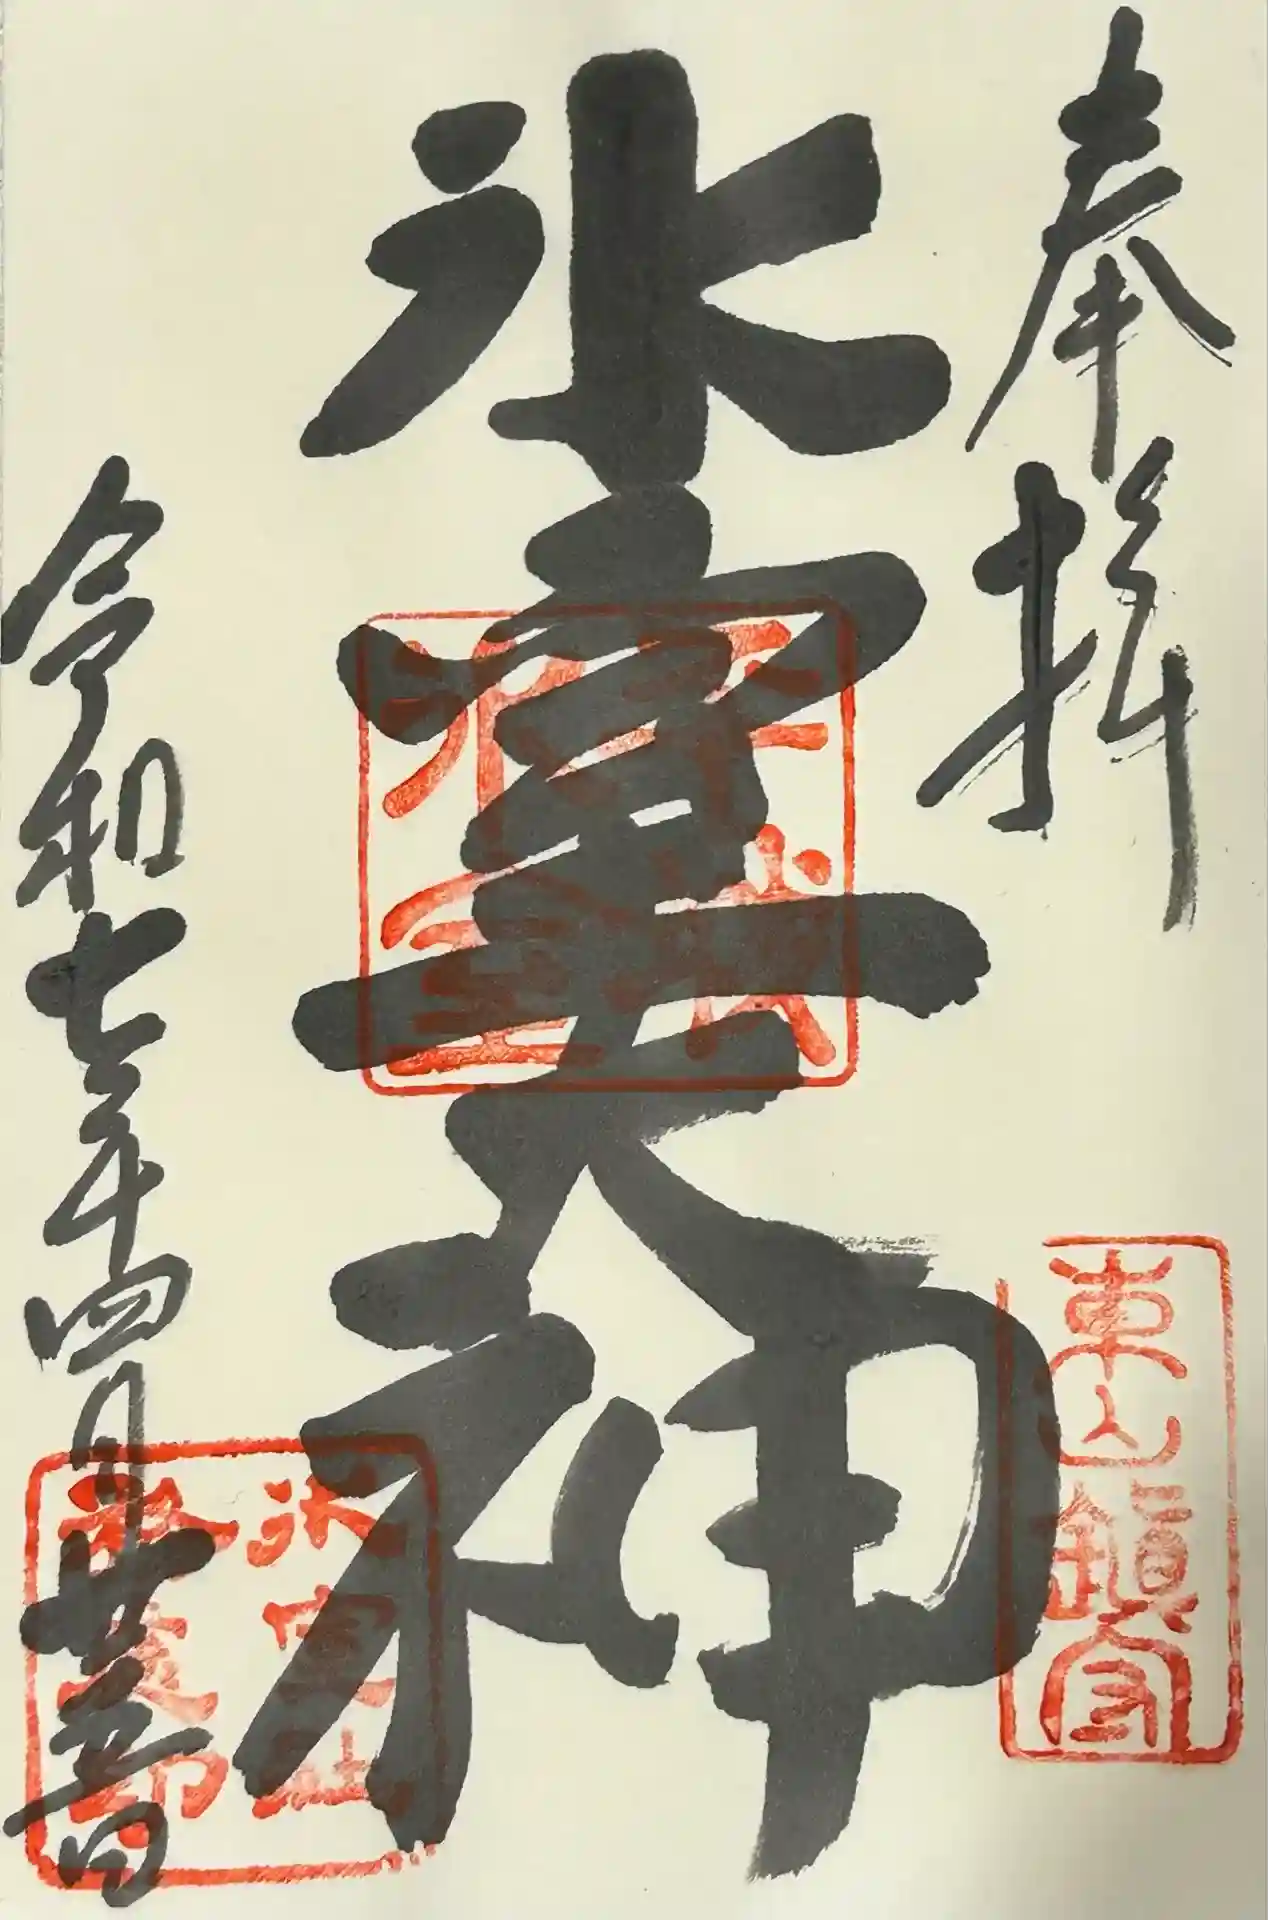 奉拝
東山鎮
氷室大神
平城
氷室
令和七年四月廿五日
氷室社